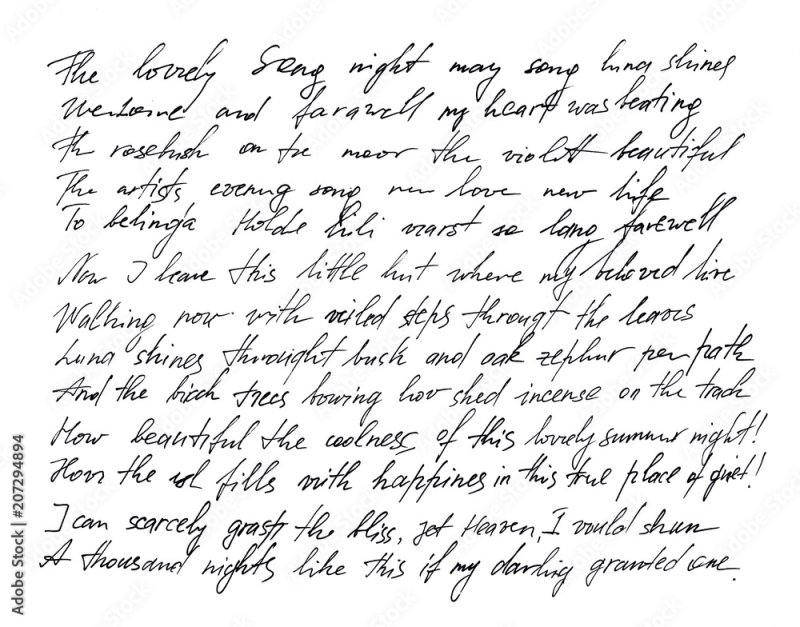 The lovely Song night may song luna shines
Welcome and farawell my heart was beating
Th rosebush on the moor the violett beautiful
The artists evening song new love new life
To belinda Holde Lili warst so lang farewell
Now I leave this little hut where my beloved live
Walking now with veiled steps througt the leaves
Luna shines throught bush and oak zephur per path
And the birch trees bowing how shed incense on the track
How beautiful the coolness of this lovely summer night!
How the fills with happines in this true place of quiet!
I can scarcely grasp the bliss, yet Heaven, I would shun
A thousand nights like this if my darling granted one.
Adobe Stock | #207294894